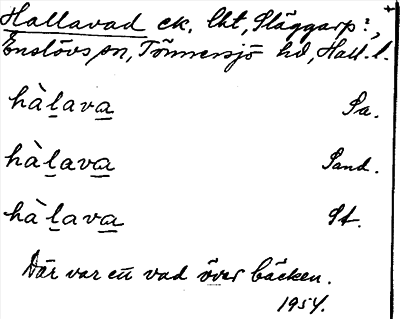 Hallavad ek. lkt, Släggarp:,
Enslövs sn, Tönnersjö hd, Hall. l.
hàlava Sa.
hàlava Sand.
hàlava St.
Där var ett vad över bäcken.
1954.